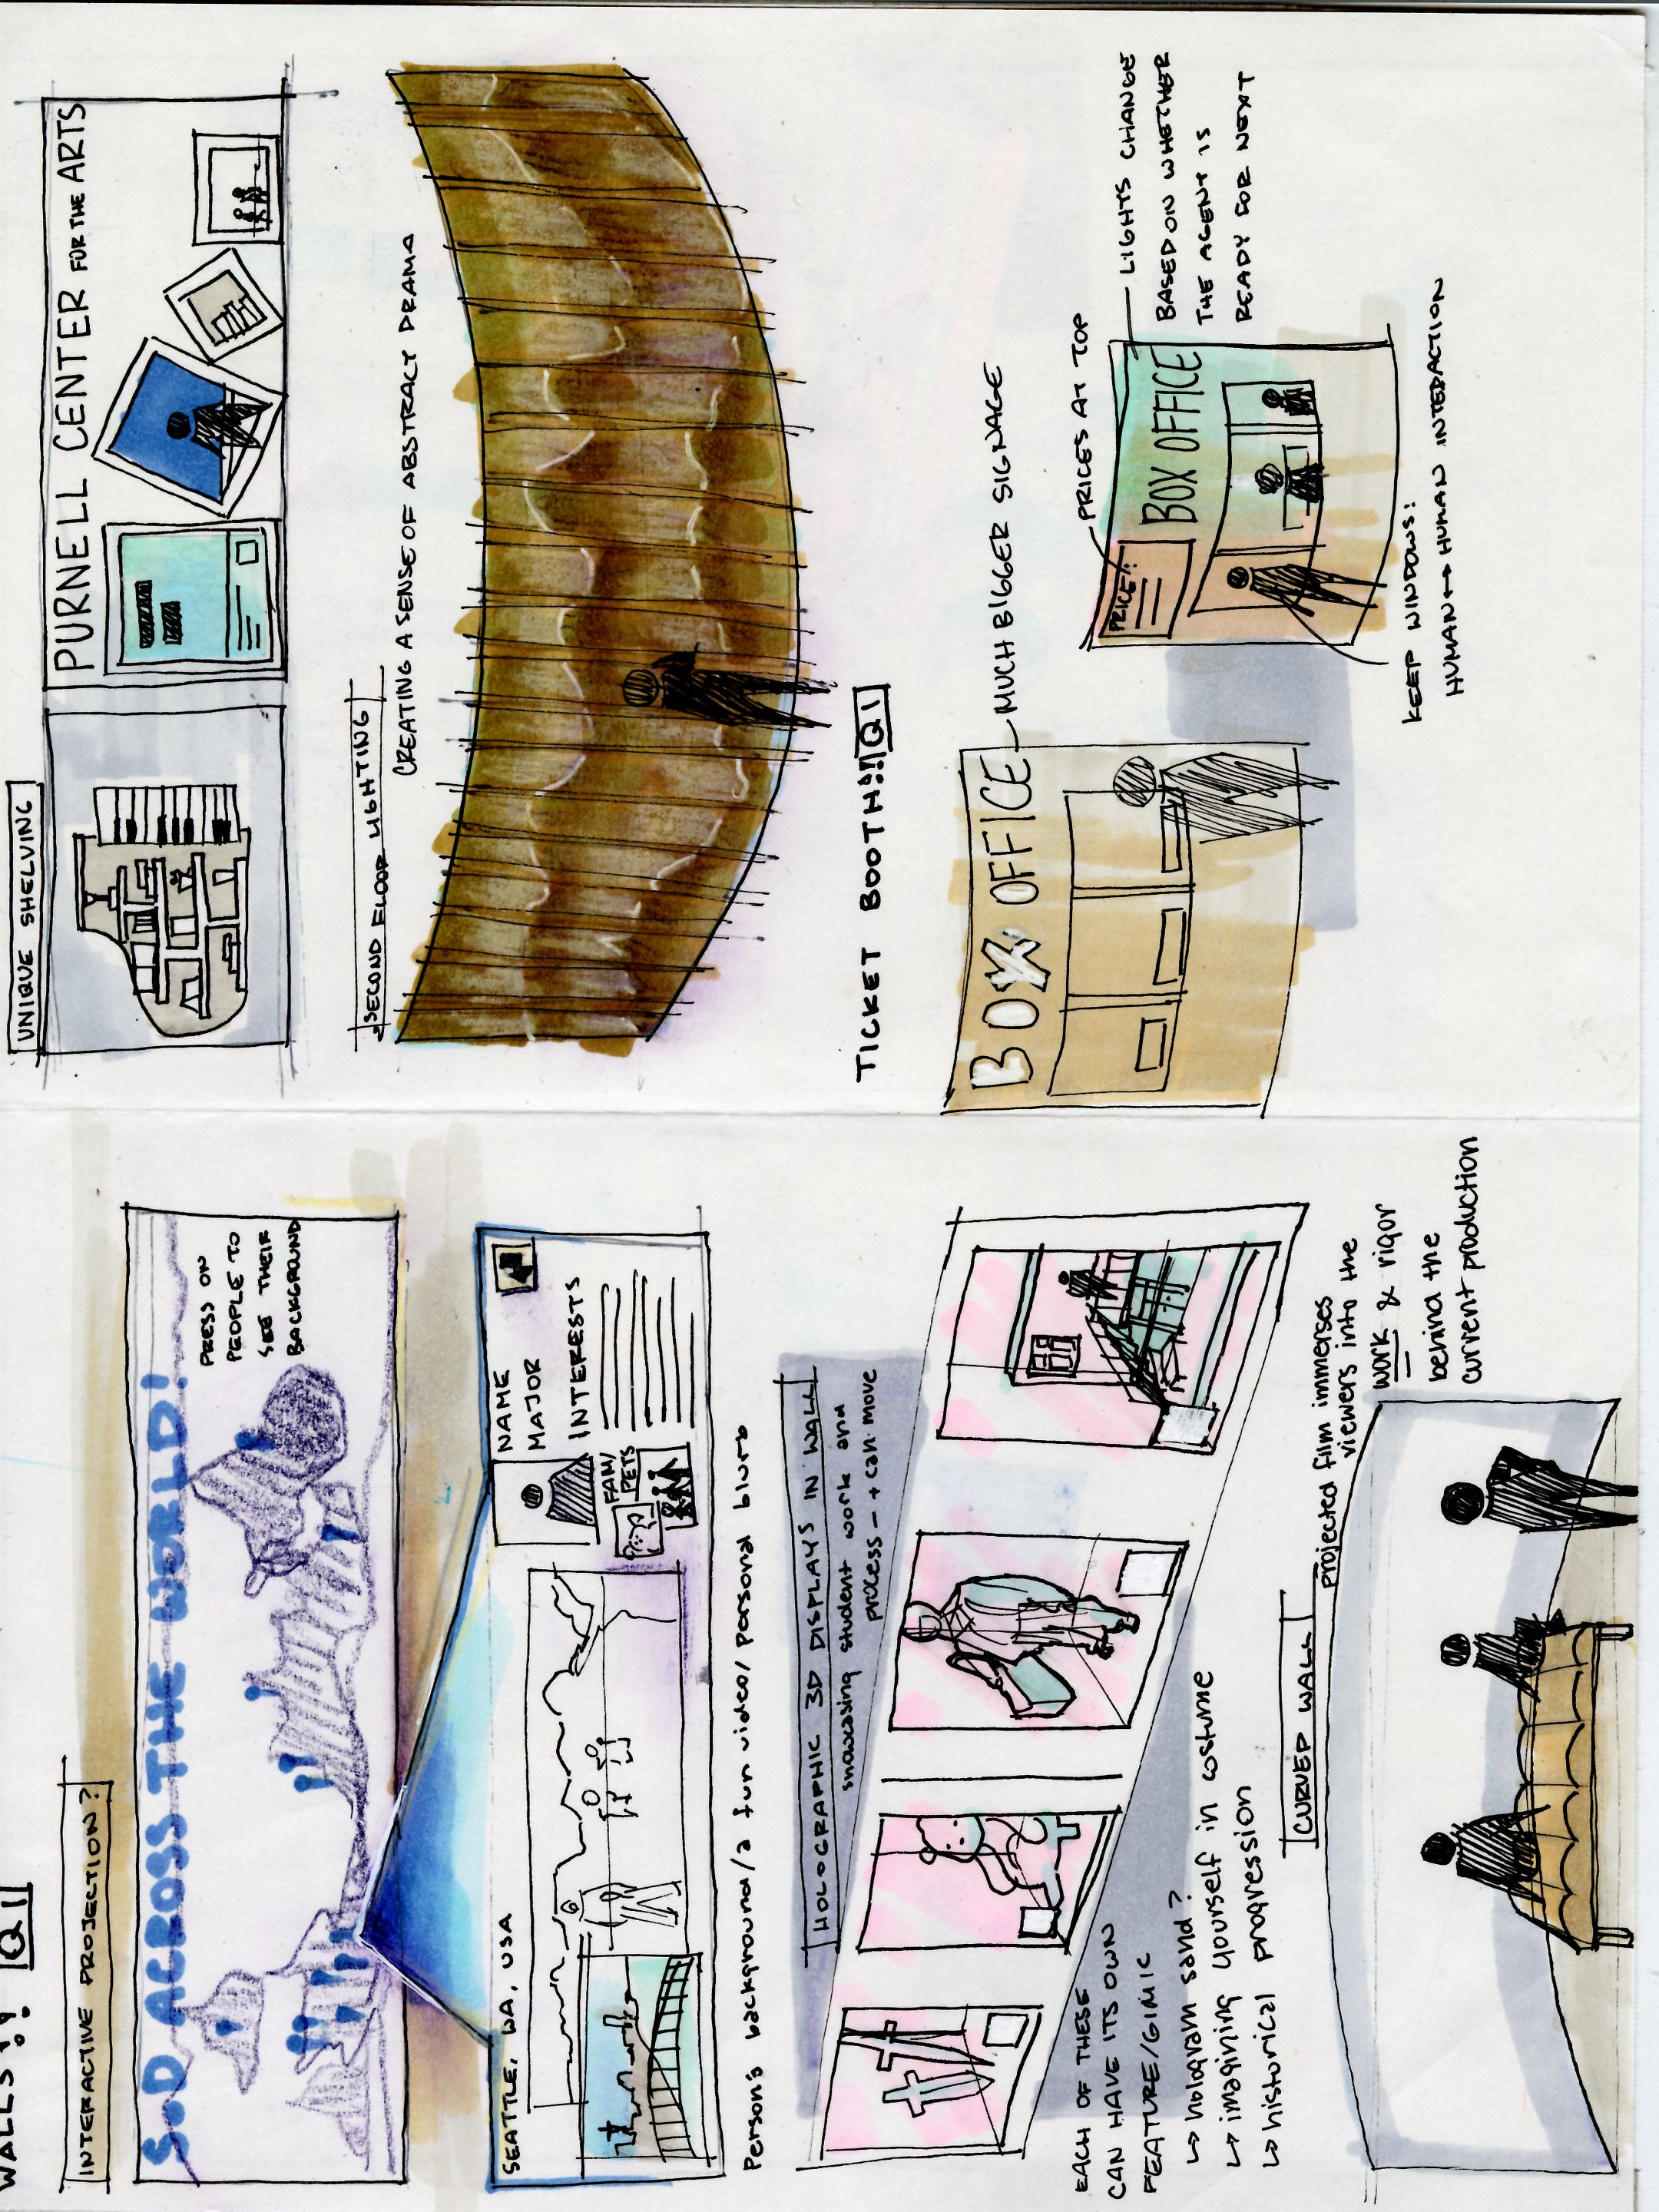 WALLS!! Q1
INTERACTIVE PROJECTION?
S.D ACROSS THE WORLD!
PRESS ON
PEOPLE TO
SEE THEIR
BACKGROUND
SEATTLE, WA, USA
NAME
MAJOR
INTERESTS
FAM/
PETS
Person's background/a fun video/personal blurb
HOLOGRAPHIC 3D DISPLAYS IN WALL
showcasing student work and
process - + can move
EACH OF THESE
CAN HAVE ITS OWN
FEATURE/GIMIC
↳ hologram sand?
↳ imagining yourself in costume
↳ historical progression
CURVED WALL
projected film immerses
viewers into the
work & rigor
behind the
current production
UNIQUE SHELVING
PURNELL CENTER FOR THE ARTS
SECOND FLOOR LIGHTING
CREATING A SENSE OF ABSTRACT DRAMA
TICKET BOOTH!! Q1
BOX OFFICE
MUCH BIGGER SIGNAGE
PRICES AT TOP
PRICE:
BOX OFFICE
LIGHTS CHANGE
BASED ON WHETHER
THE AGENT IS
READY FOR NEXT
KEEP WINDOWS:
HUMAN ↔ HUMAN INTERACTION